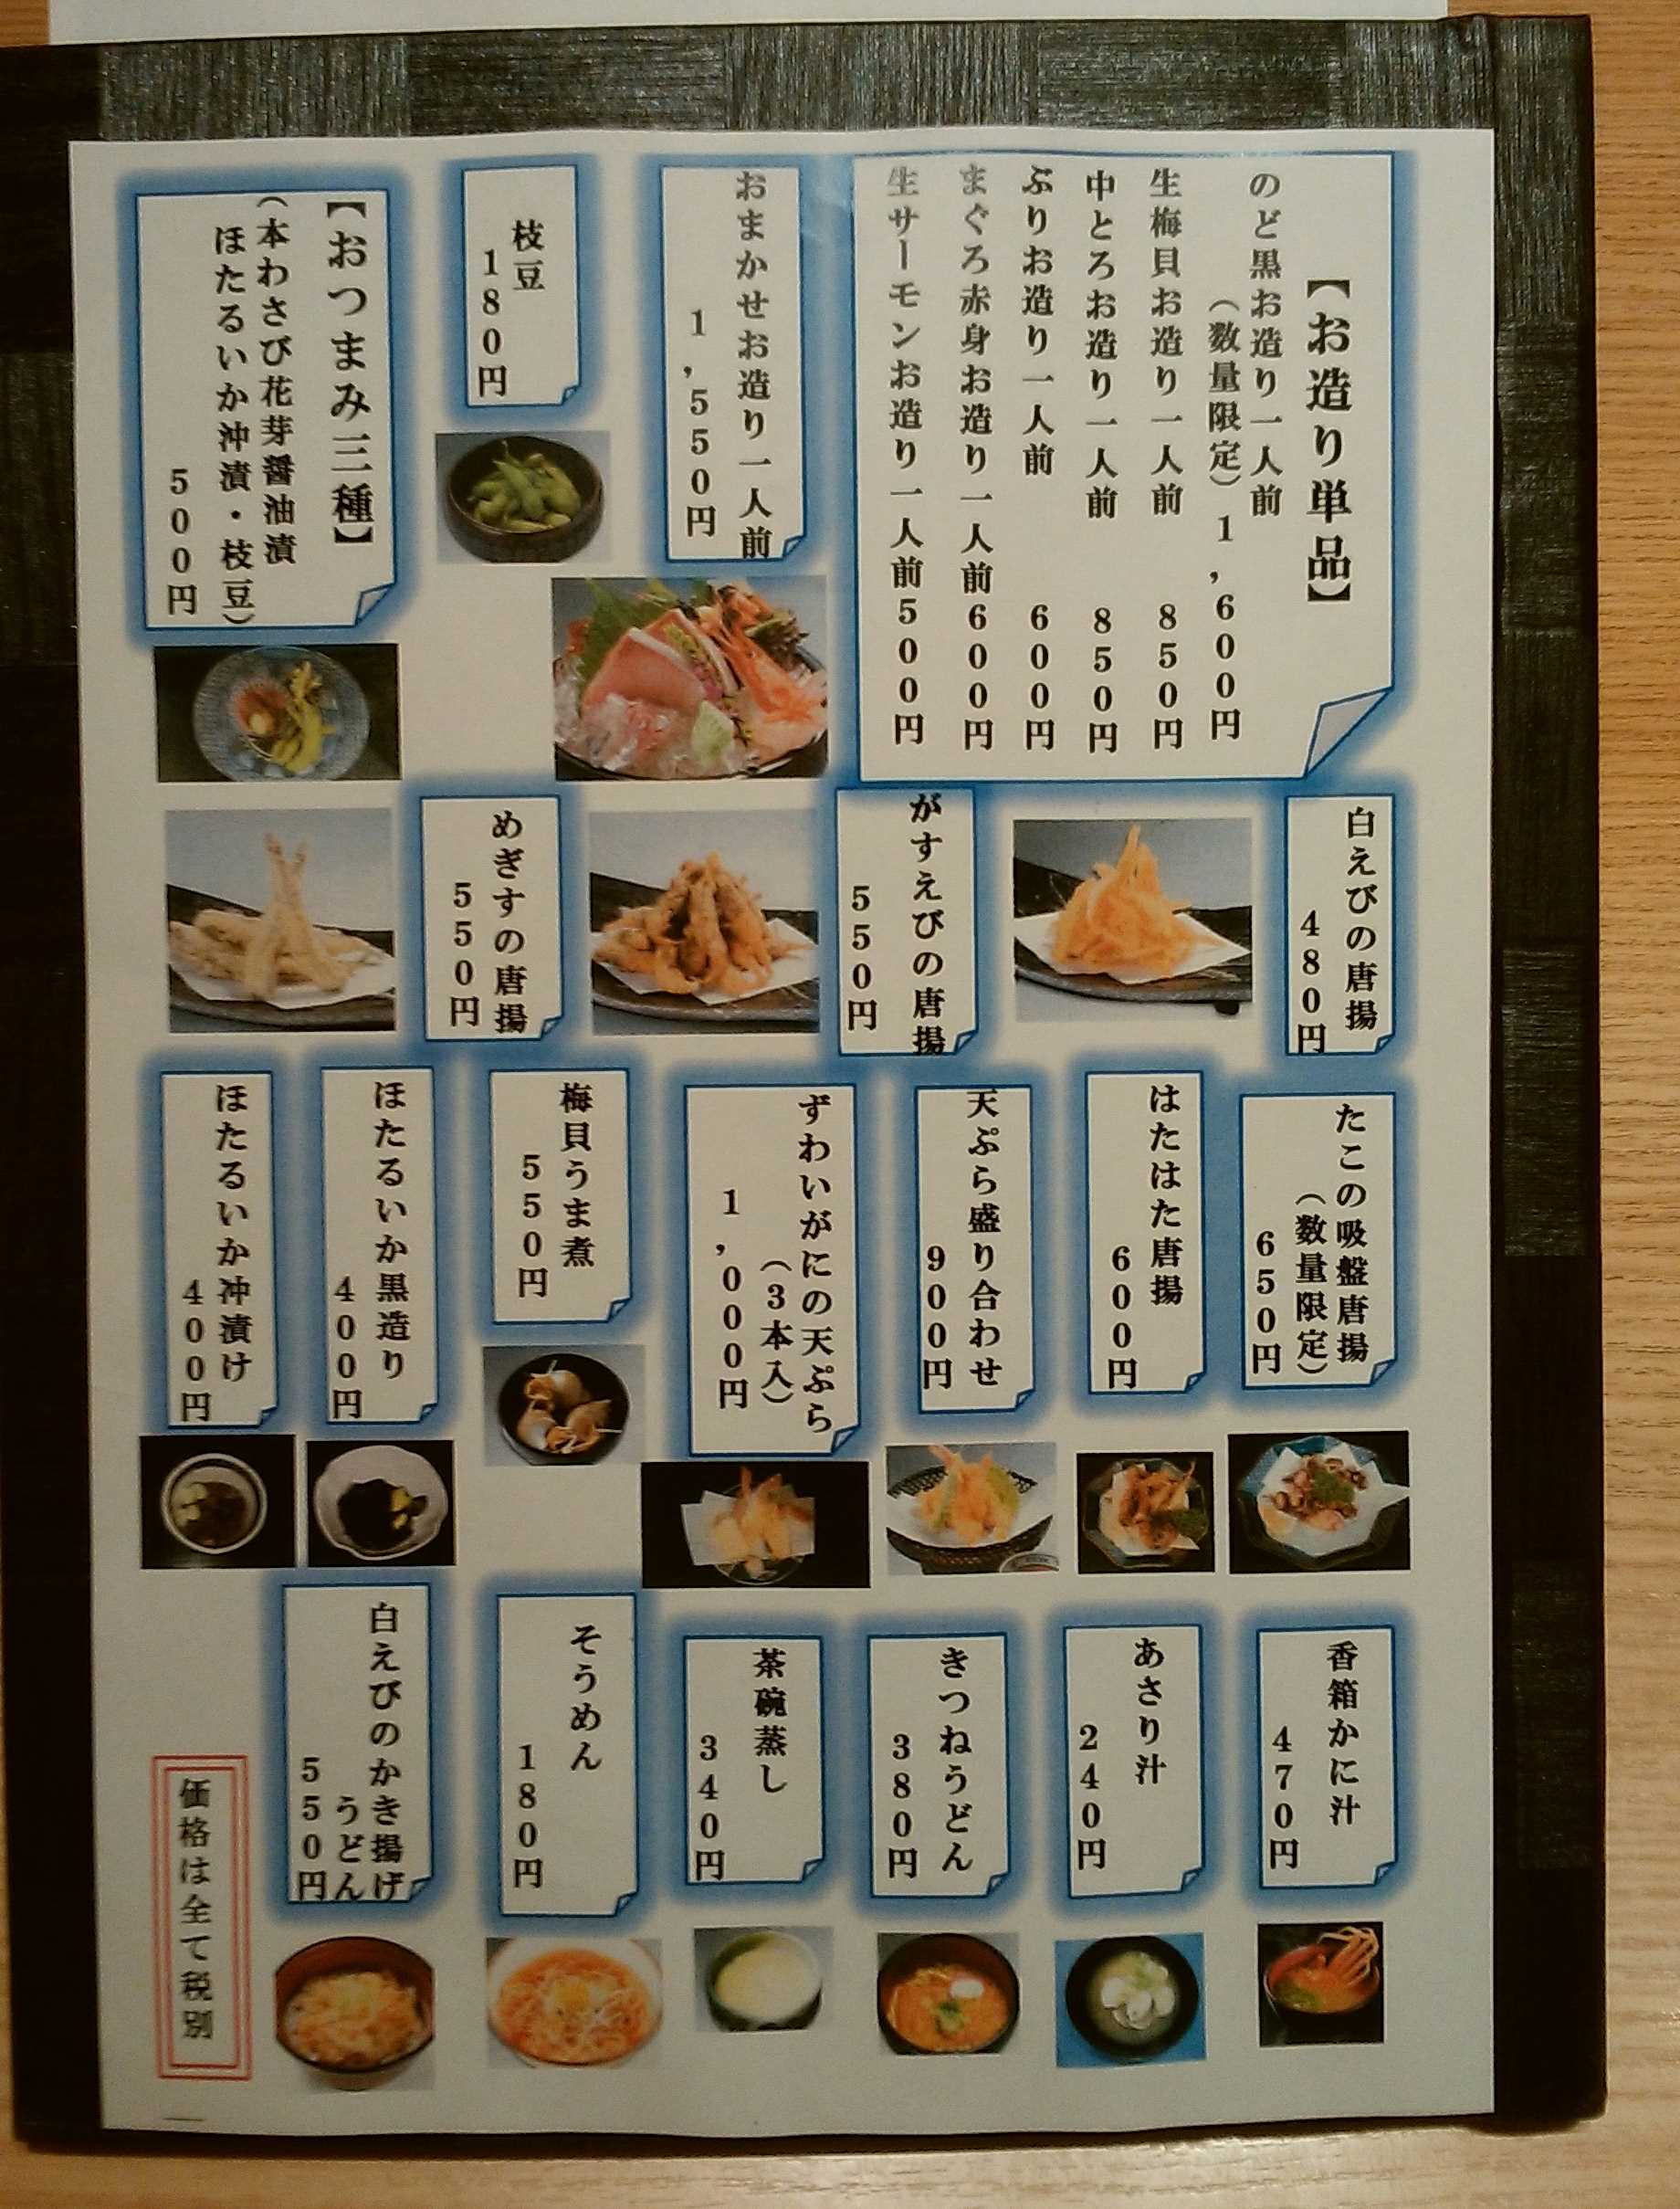 【お造り単品】
のど黒お造り一人前
（数量限定）1,600円
生梅貝お造り一人前 850円
中とろお造り一人前 850円
ぶりお造り一人前 600円
まぐろ赤身お造り一人前 600円
生サーモンお造り一人前 500円
おまかせお造り一人前
1,550円
枝豆
180円
【おつまみ三種】
（本わさび花芽醤油漬
ほたるいか沖漬・枝豆）
500円
白えびの唐揚
480円
がすえびの唐揚
550円
めぎすの唐揚
550円
たこの吸盤唐揚
（数量限定）
650円
はたはた唐揚
600円
天ぷら盛り合わせ
900円
ずわいがにの天ぷら
（3本入）
1,000円
梅貝うま煮
550円
ほたるいか黒造り
400円
ほたるいか沖漬け
400円
香箱かに汁
470円
あさり汁
240円
きつねうどん
380円
茶碗蒸し
340円
そうめん
180円
白えびのかき揚げ
うどん
550円
価格は全て税別